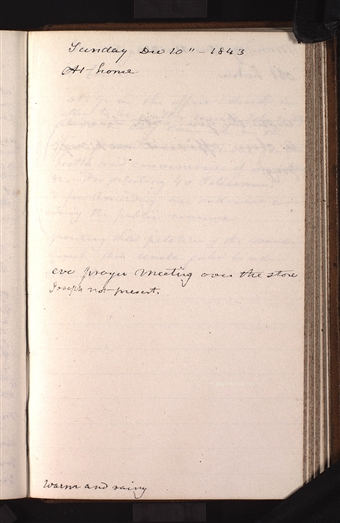 Sunday Dec 10" - 1843
At home
eve prayer meeting over the store
Joseph not present.
Warm and rainy